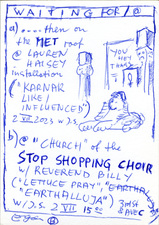 WAITING FOR / @
a)....then on
the MET roof
@ LAUREN
HALSEY
installation
("KARNAK
LIKE /
INFLUENCED")
2 VII 2023 w J.S.
YOU
HEY
b) @ "CHURCH" of the
STOP SHOPPING CHOIR
w/ REVEREND BILLY
("LETTUCE PRAY" "EARTHA
EARTHALLUJA")
w/ J.S. 2 VII 15⁰⁰
3rd St
& AVE C